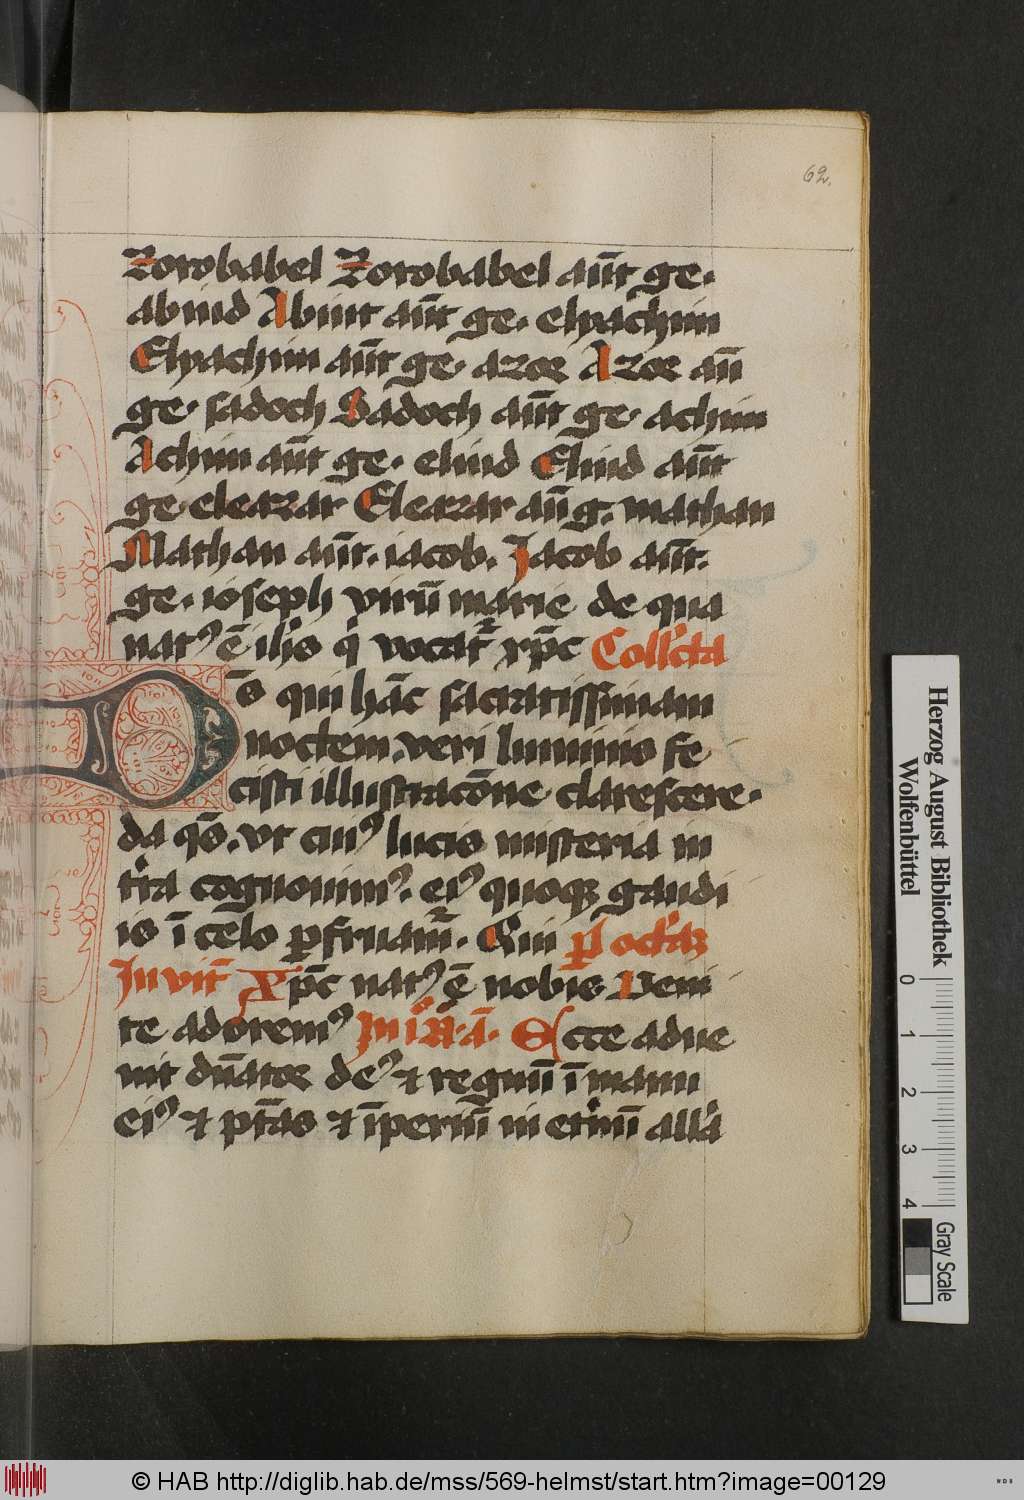 62.
Zorobabel Zorobabel aūt ge·
abiud Abiut aūt ge· elyachim
Elyachim aūt ge· azor Azor aū
ge· sadoch Sadoch aūt ge· achim
Achim aūt ge· eliud Eliud aūt
ge eleazar Eleazar aū g. mathan
Mathan aūt· iacob. Jacob aūt·
ge· ioseph virū marie de qua
natꝰ ē ihs q vocat xp̄c Collcta
Ds̄ qui hāc sacratissimam
noctem veri luminis fe
cisti illustracōne clarescere·
da qs̄. vt cuiꝰ lucis misteria in
tra cognouimꝰ. eiꝰ quoqꝫ gaudi
is ī celo ꝑfruam̄· Qui
Inuit Xp̄c natꝰ ē nobis Veni
te adoremꝰ Ecce adue
nit dn̄ator deꝰ ⁊ regnū ī manu
eiꝰ ⁊ ptās ⁊ īperiū in etnū alla
Herzog August Bibliothek
Wolfenbüttel
0 1 2 3 4
Gray Scale
© HAB http://diglib.hab.de/mss/569-helmst/start.htm?image=00129